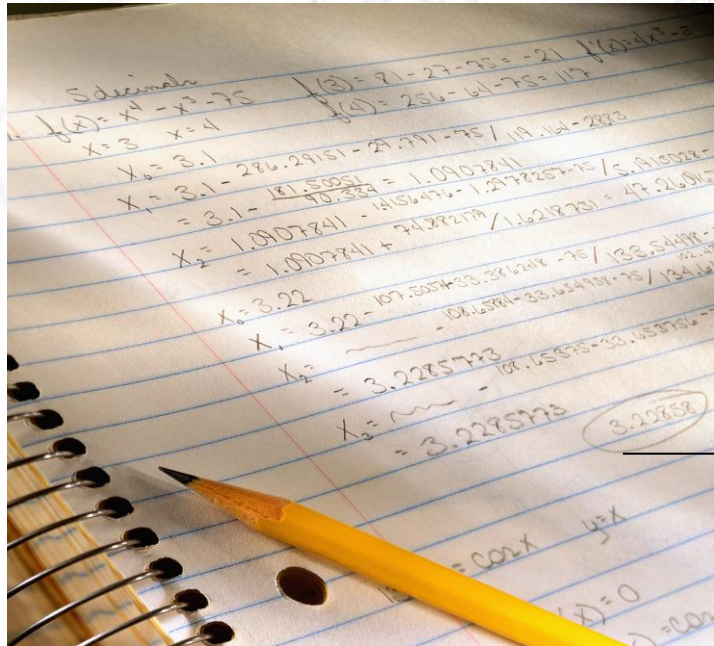 5 decimals
1. f(x) = x⁴ - x³ - 75 f(3) = 81 - 27 - 75 = -21 f'(x) = 4x³ - 3
x = 3 x = 4 f(4) = 256 - 64 - 75 = 117
x₀ = 3.1
x₁ = 3.1 - 286.29151 - 29.791 - 75 / 119.164 - 2883
= 3.1 - 181.50051 / 90.334 = 1.0907841
x₂ = 1.0907841 - 1.4156476 - 1.2978257 - 75 / 5.1913028 -
= 1.0907841 + 74.882179 / 1.6218731 = 47.2606
x₀ = 3.22
x₁ = 3.22 - 107.5037 - 33.386248 - 75 / 133.54498 -
x₂ = - 108.65884 - 33.654938 - 75 / 134.6
= 3.2285773
x₃ = - 108.65375 - 33.653756 -
= 3.2285773 3.22858
= cosx y=x
(x) = 0
) = cos